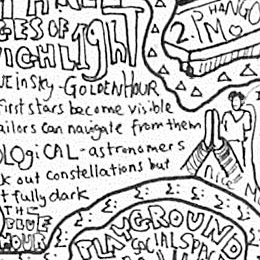 THREE
GES OF
WIGHLIGHT
2.PM
HANGO
UE in SKY - GOLDEN HOUR
first stars become visible
ailors can navigate from them
OLOGiCAL - astronomers
k out constellations but
t fully dark
THE
BLUE
HOUR
PLAYGROUND
SOCIAL SPAN